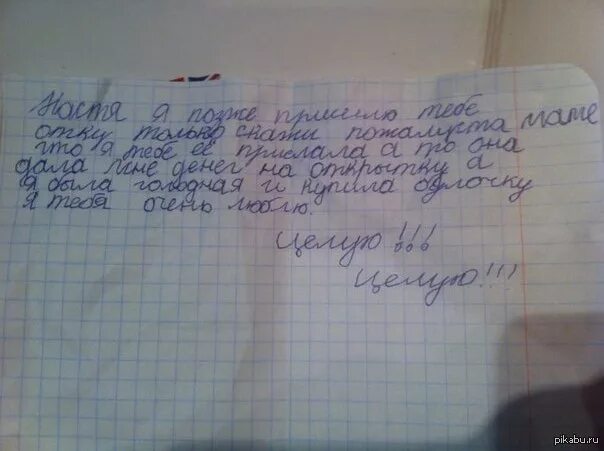 Настя я позже пришлю тебе
отку только скажи пожалуста маме
что я тебе её прислала а то она
дала мне денег на открытку а
я была голодная и купила булочку
я тебя очень люблю.
Целую!!!
Целую!!!
pikabu.ru